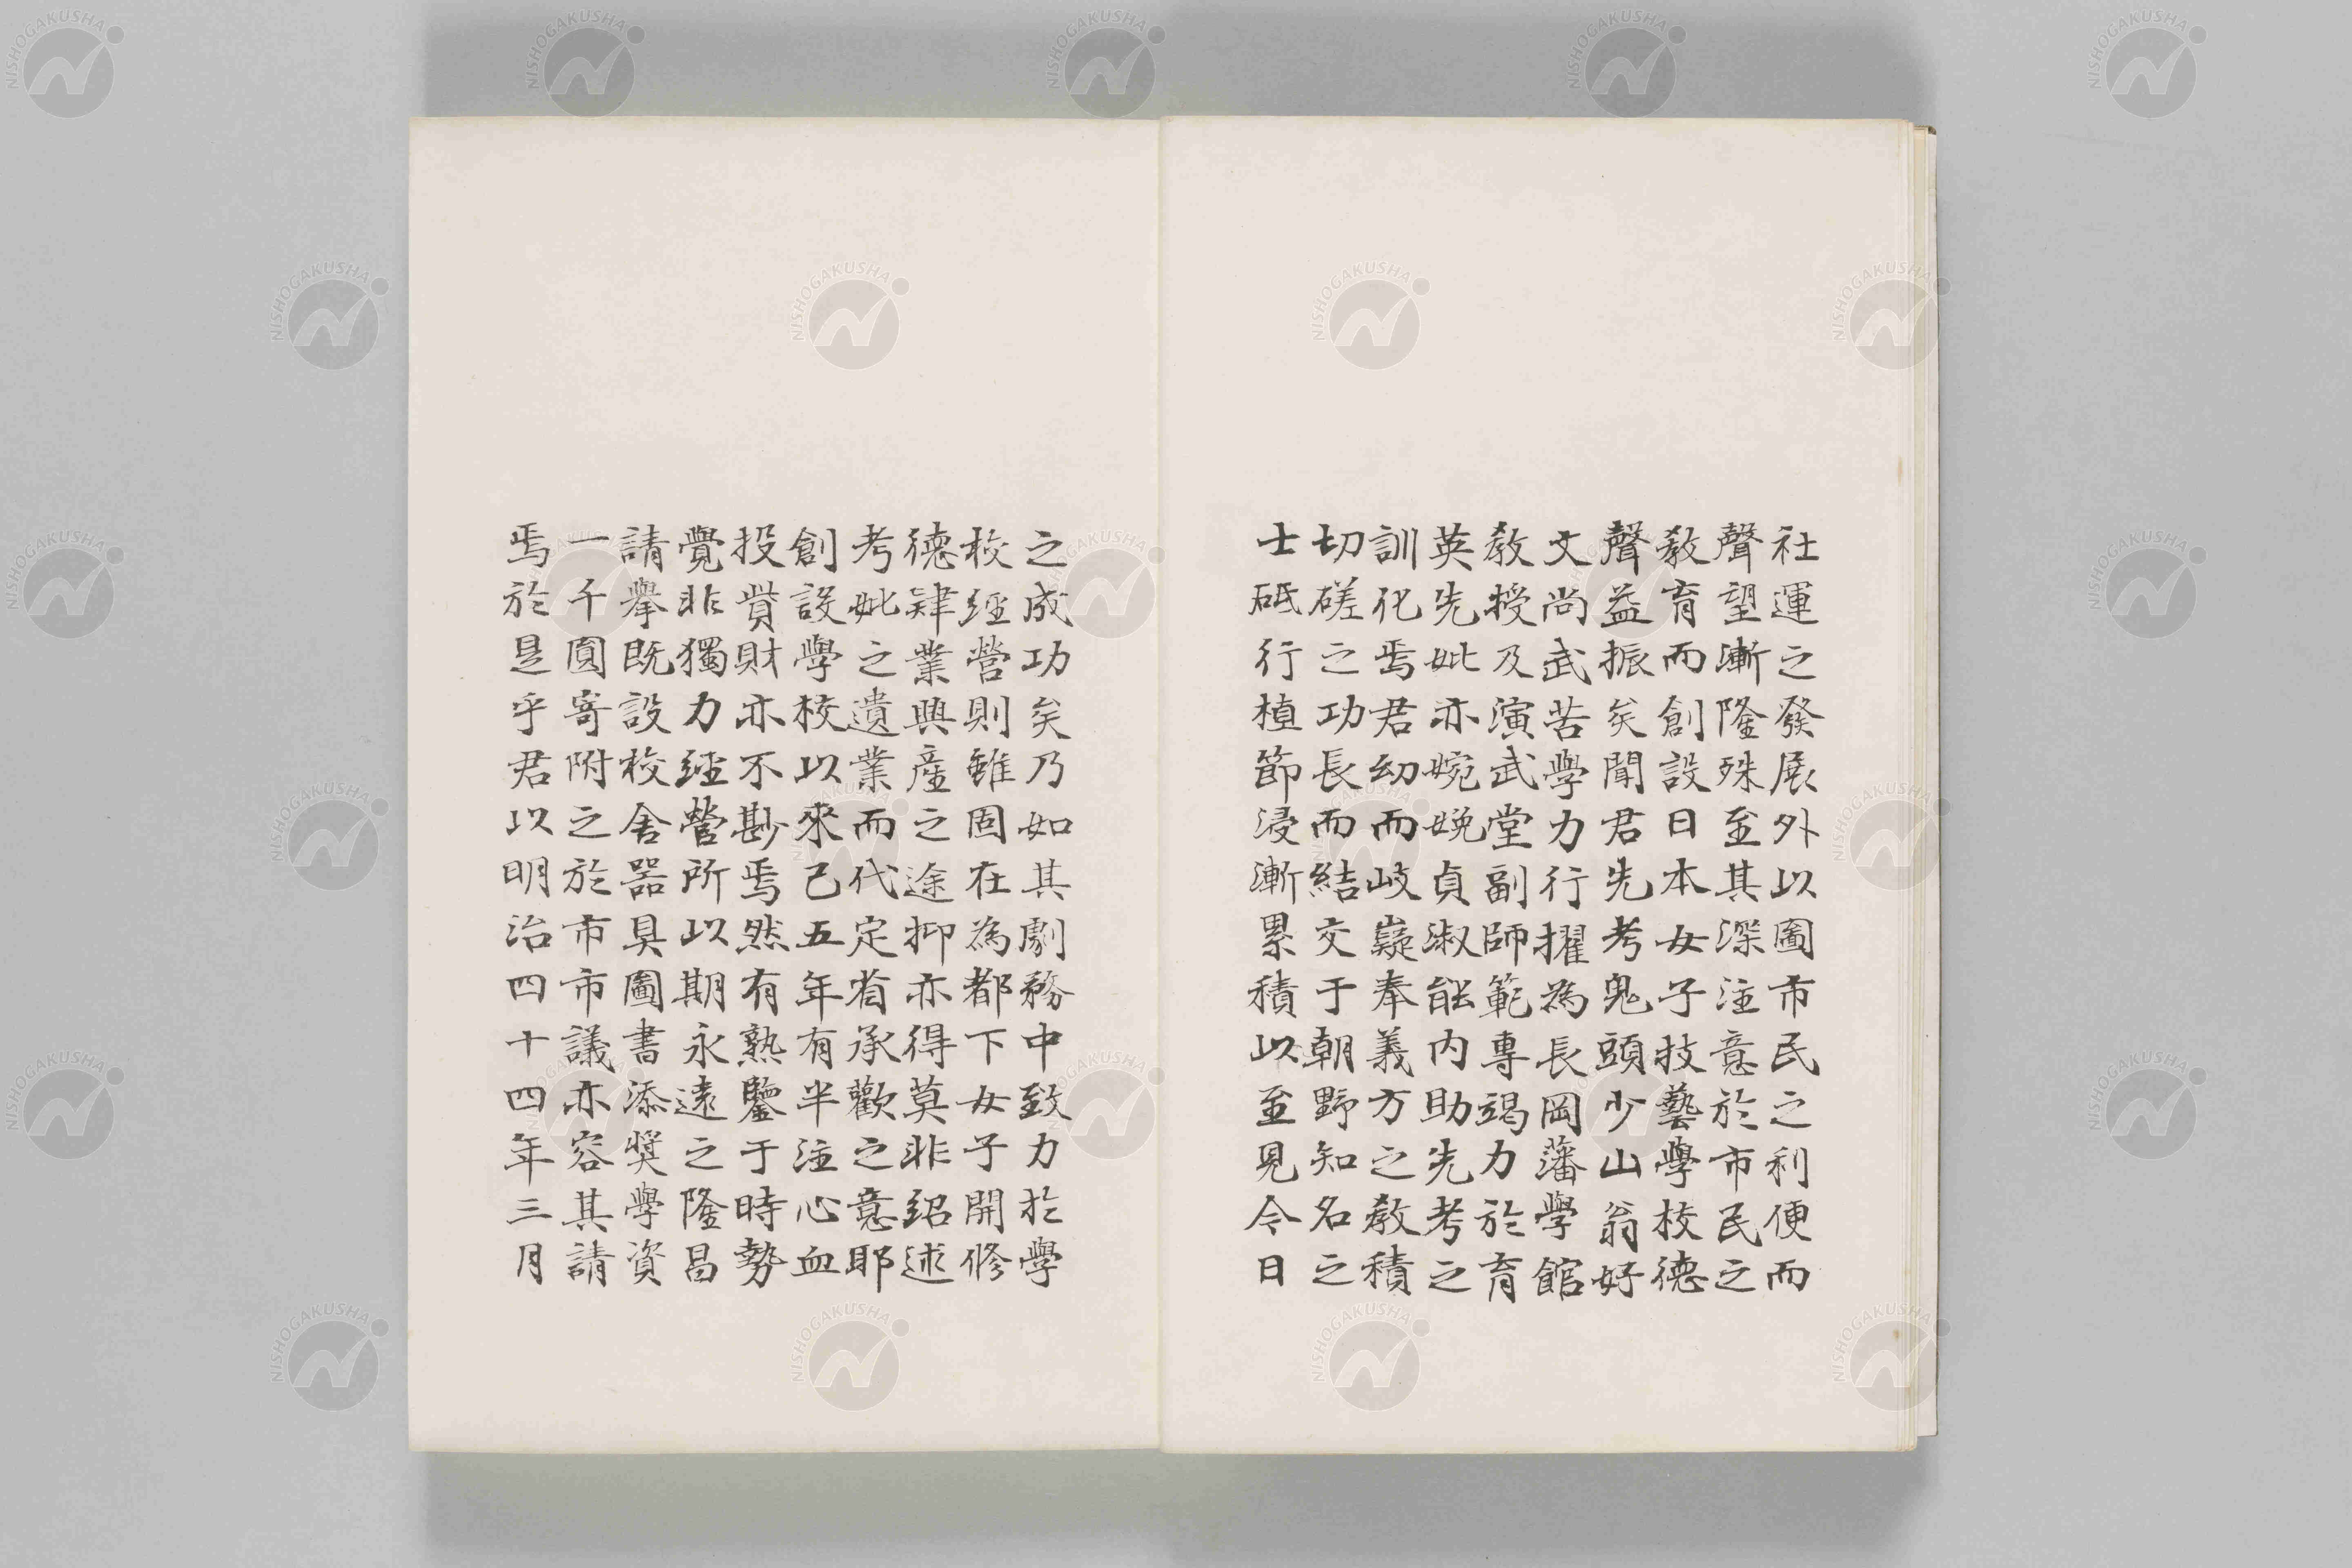 社運之發展外以圖市民之利便而
聲望漸隆殊至其深注意於市民之
教育而創設日本女子技藝學校德
聲益振矣聞君先考鬼頭少山翁好
文尚武苦學力行擢為長岡藩學館
教授及演武堂副師範專竭力於育
英先妣亦婉娩貞淑能内助先考之
訓化焉君幼而岐嶷奉義方之教積
切磋之功長而結交于朝野知名之
士砥行植節浸漸累積以至見令日
之成功矣乃如其劇務中致力於學
校經營則雖固在為都下女子開修
德肄業興產之途抑亦得莫非紹述
考妣之遺業而代定省承歡之意耶
創設學校以來己五年有半注心血
投貲財亦不尠焉然有熟鑒于時勢
覺非獨力經營所以期永遠之隆昌
請擧既設校舍器具圖書添奬學資
一千圓寄附之於市市議亦容其請
焉於是乎君以明治四十四年三月
NISHOGAKUSHA